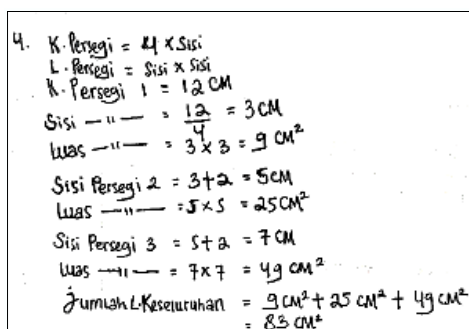 4. K. Persegi = 4 x Sisi
L. Persegi = Sisi x Sisi
K. Persegi 1 = 12 CM
Sisi —"— = 12/4 = 3 CM
Luas —"— = 3 x 3 = 9 CM²
Sisi Persegi 2 = 3+2 = 5CM
Luas —"— = 5x5 = 25CM²
Sisi Persegi 3 = 5+2 = 7 CM
Luas —"— = 7x7 = 49 CM²
Jumlah L.Keseluruhan = 9CM² + 25 CM² + 49 CM²
= 83 CM²